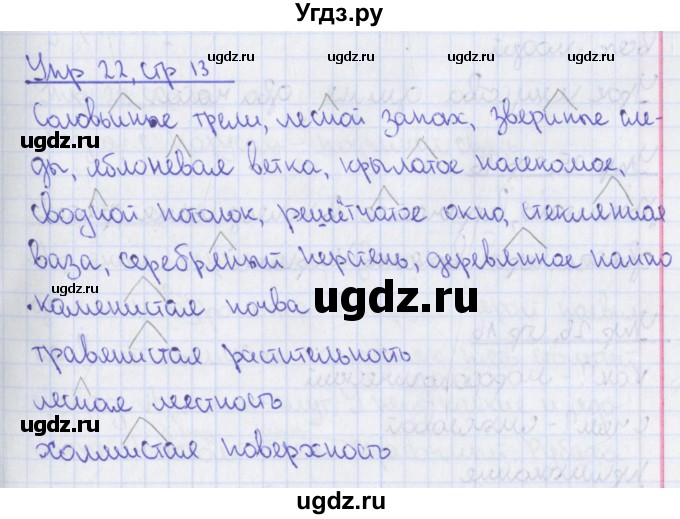 Угдз.ру
ugdz.ru ugdz.ru
Упр 22, стр 13
ugdz.ru
Соловьиные трели, лесной запах, звериные сле-
ugdz.ru ugdz.ru
ды, яблоневая ветка, крылатое насекомое,
сводной потолок, решётчатое окно, стеклянная
ugdz.ru
ваза, серебряный перстень, деревянное панно
ugdz.ru
каменистая почва
ugdz.ru
травянистая растительность
лесная местность
ugdz.ru ugdz.ru
холмистая поверхность
ugdz.ru
ugdz.ru